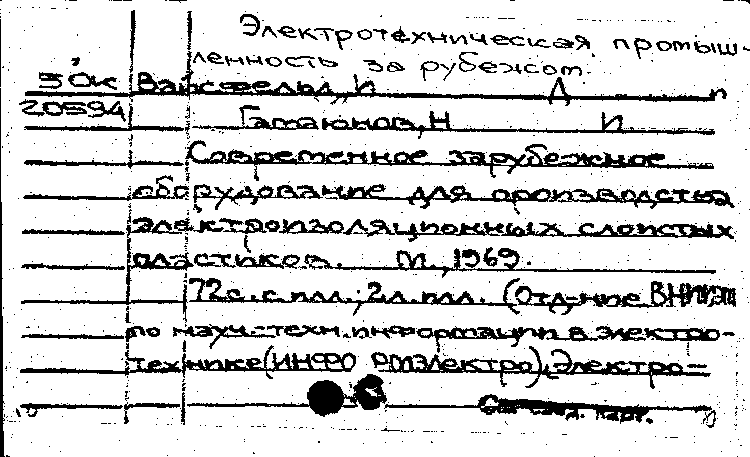 Электротехническая промыш-
ленность за рубежом.
5 Ок Вайсфельд, И Д
20594 Гамаюнов, Н И
Современное зарубежное
оборудование для производства
электроизоляционных слоистых
пластиков. М., 1969.
72с. с илл.; 2л. илл. (Отд-ние ВНИИЭМ
по науч.-техн. информации в электро-
технике (ИНФОРМЭЛЕКТРО). Электро-
След. карт.